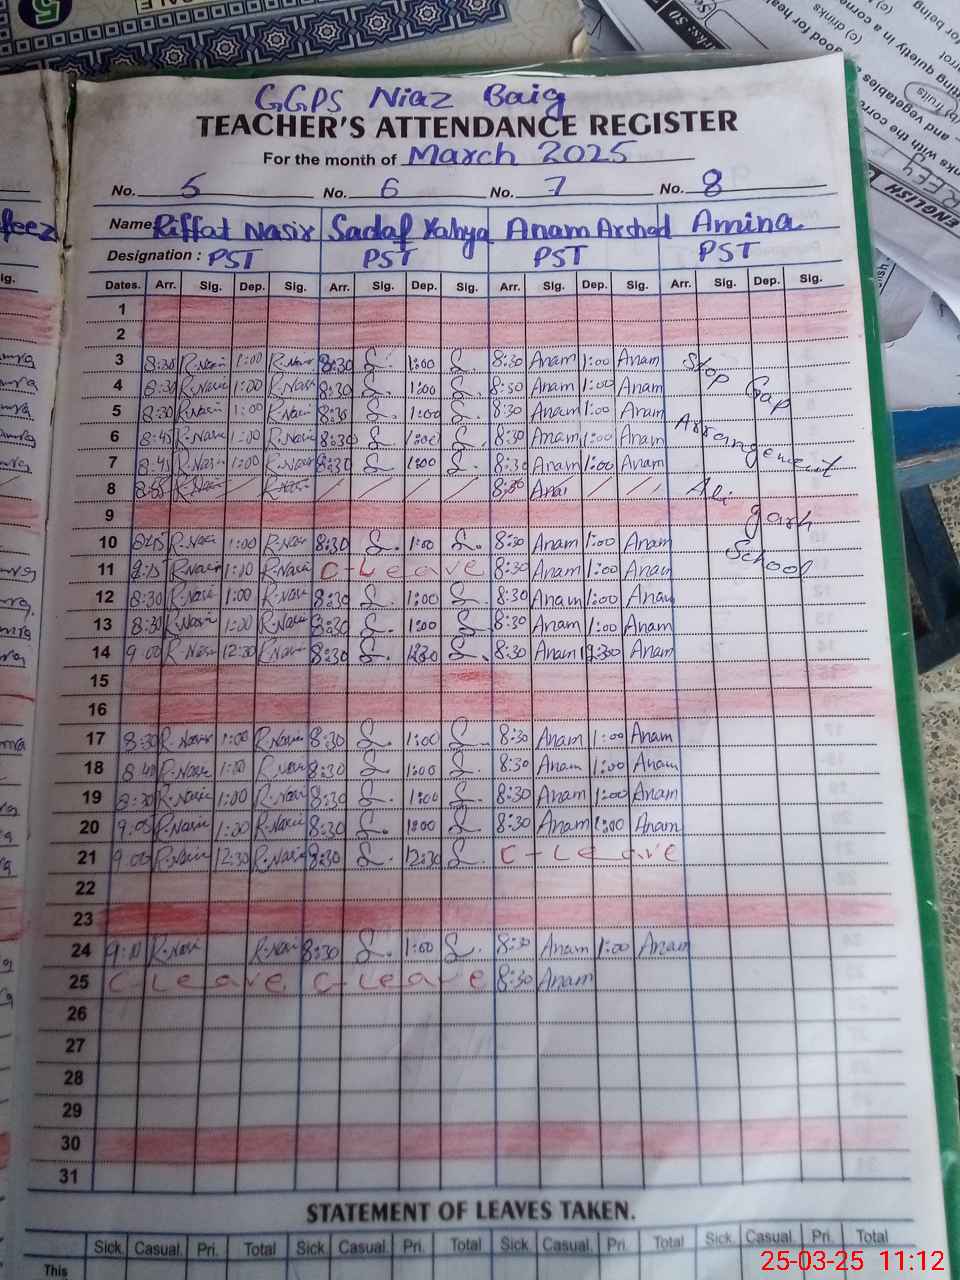 GGPS Niaz Baig
TEACHER'S ATTENDANCE REGISTER
For the month of March 2025
No. 5 No. 6 No. 7 No. 8
Name Riffat Nasir Sadaf Yahya Anam Arshad Amina
Designation : PST PST PST PST
Dates. Arr. Sig. Dep. Sig. Arr. Sig. Dep. Sig. Arr. Sig. Dep. Sig. Arr. Sig. Dep. Sig.
1
2
3 8:30 R.Nasir 1:00 R.Nasir 8:30 S. 1:00 S. 8:30 Anam 1:00 Anam Stop
4 8:30 R.Nasir 1:00 R.Nasir 8:30 S. 1:00 S. 8:30 Anam 1:00 Anam Gap
5 8:30 R.Nasir 1:00 R.Nasir 8:30 S. 1:00 S. 8:30 Anam 1:00 Anam
6 8:45 R.Nasir 1:00 R.Nasir 8:30 S. 1:00 S. 8:30 Anam 1:00 Anam Arrangement
7 8:45 R.Nasir 1:00 R.Nasir 8:30 S. 1:00 S. 8:30 Anam 1:00 Anam
8 Ali
9 garh
10 8:45 R.Nasir 1:00 R.Nasir 8:30 S. 1:00 S. 8:30 Anam 1:00 Anam School
11 R.Nasir 1:00 R.Nasir C-Leave 8:30 Anam 1:00 Anam
12 8:30 R.Nasir 1:00 R.Nasir 8:30 S. 1:00 S. 8:30 Anam 1:00 Anam
13 8:30 R.Nasir 1:00 R.Nasir 8:30 S. 1:00 S. 8:30 Anam 1:00 Anam
14 9:00 R.Nasir 12:30 R.Nasir 8:30 S. 12:30 S. 8:30 Anam 12:30 Anam
15
16
17 8:30 R.Nasir 1:00 R.Nasir 8:30 S. 1:00 S. 8:30 Anam 1:00 Anam
18 8:40 R.Nasir 1:00 R.Nasir 8:30 S. 1:00 S. 8:30 Anam 1:00 Anam
19 8:30 R.Nasir 1:00 R.Nasir 8:30 S. 1:00 S. 8:30 Anam 1:00 Anam
20 9:05 R.Nasir 1:00 R.Nasir 8:30 S. 1:00 S. 8:30 Anam 1:00 Anam
21 9:00 R.Nasir 12:30 R.Nasir 8:30 S. 12:30 S. C-Leave
22
23
24 9:10 R.Nasir R.Nasir 8:30 S. 1:00 S. 8:30 Anam 1:00 Anam
25 C-Leave C-Leave 8:30 Anam
26
27
28
29
30
31
STATEMENT OF LEAVES TAKEN.
Sick. Casual. Pri. Total Sick. Casual. Pri. Total Sick. Casual. Pri. Total Sick. Casual. Pri. Total
This
25-03-25 11:12